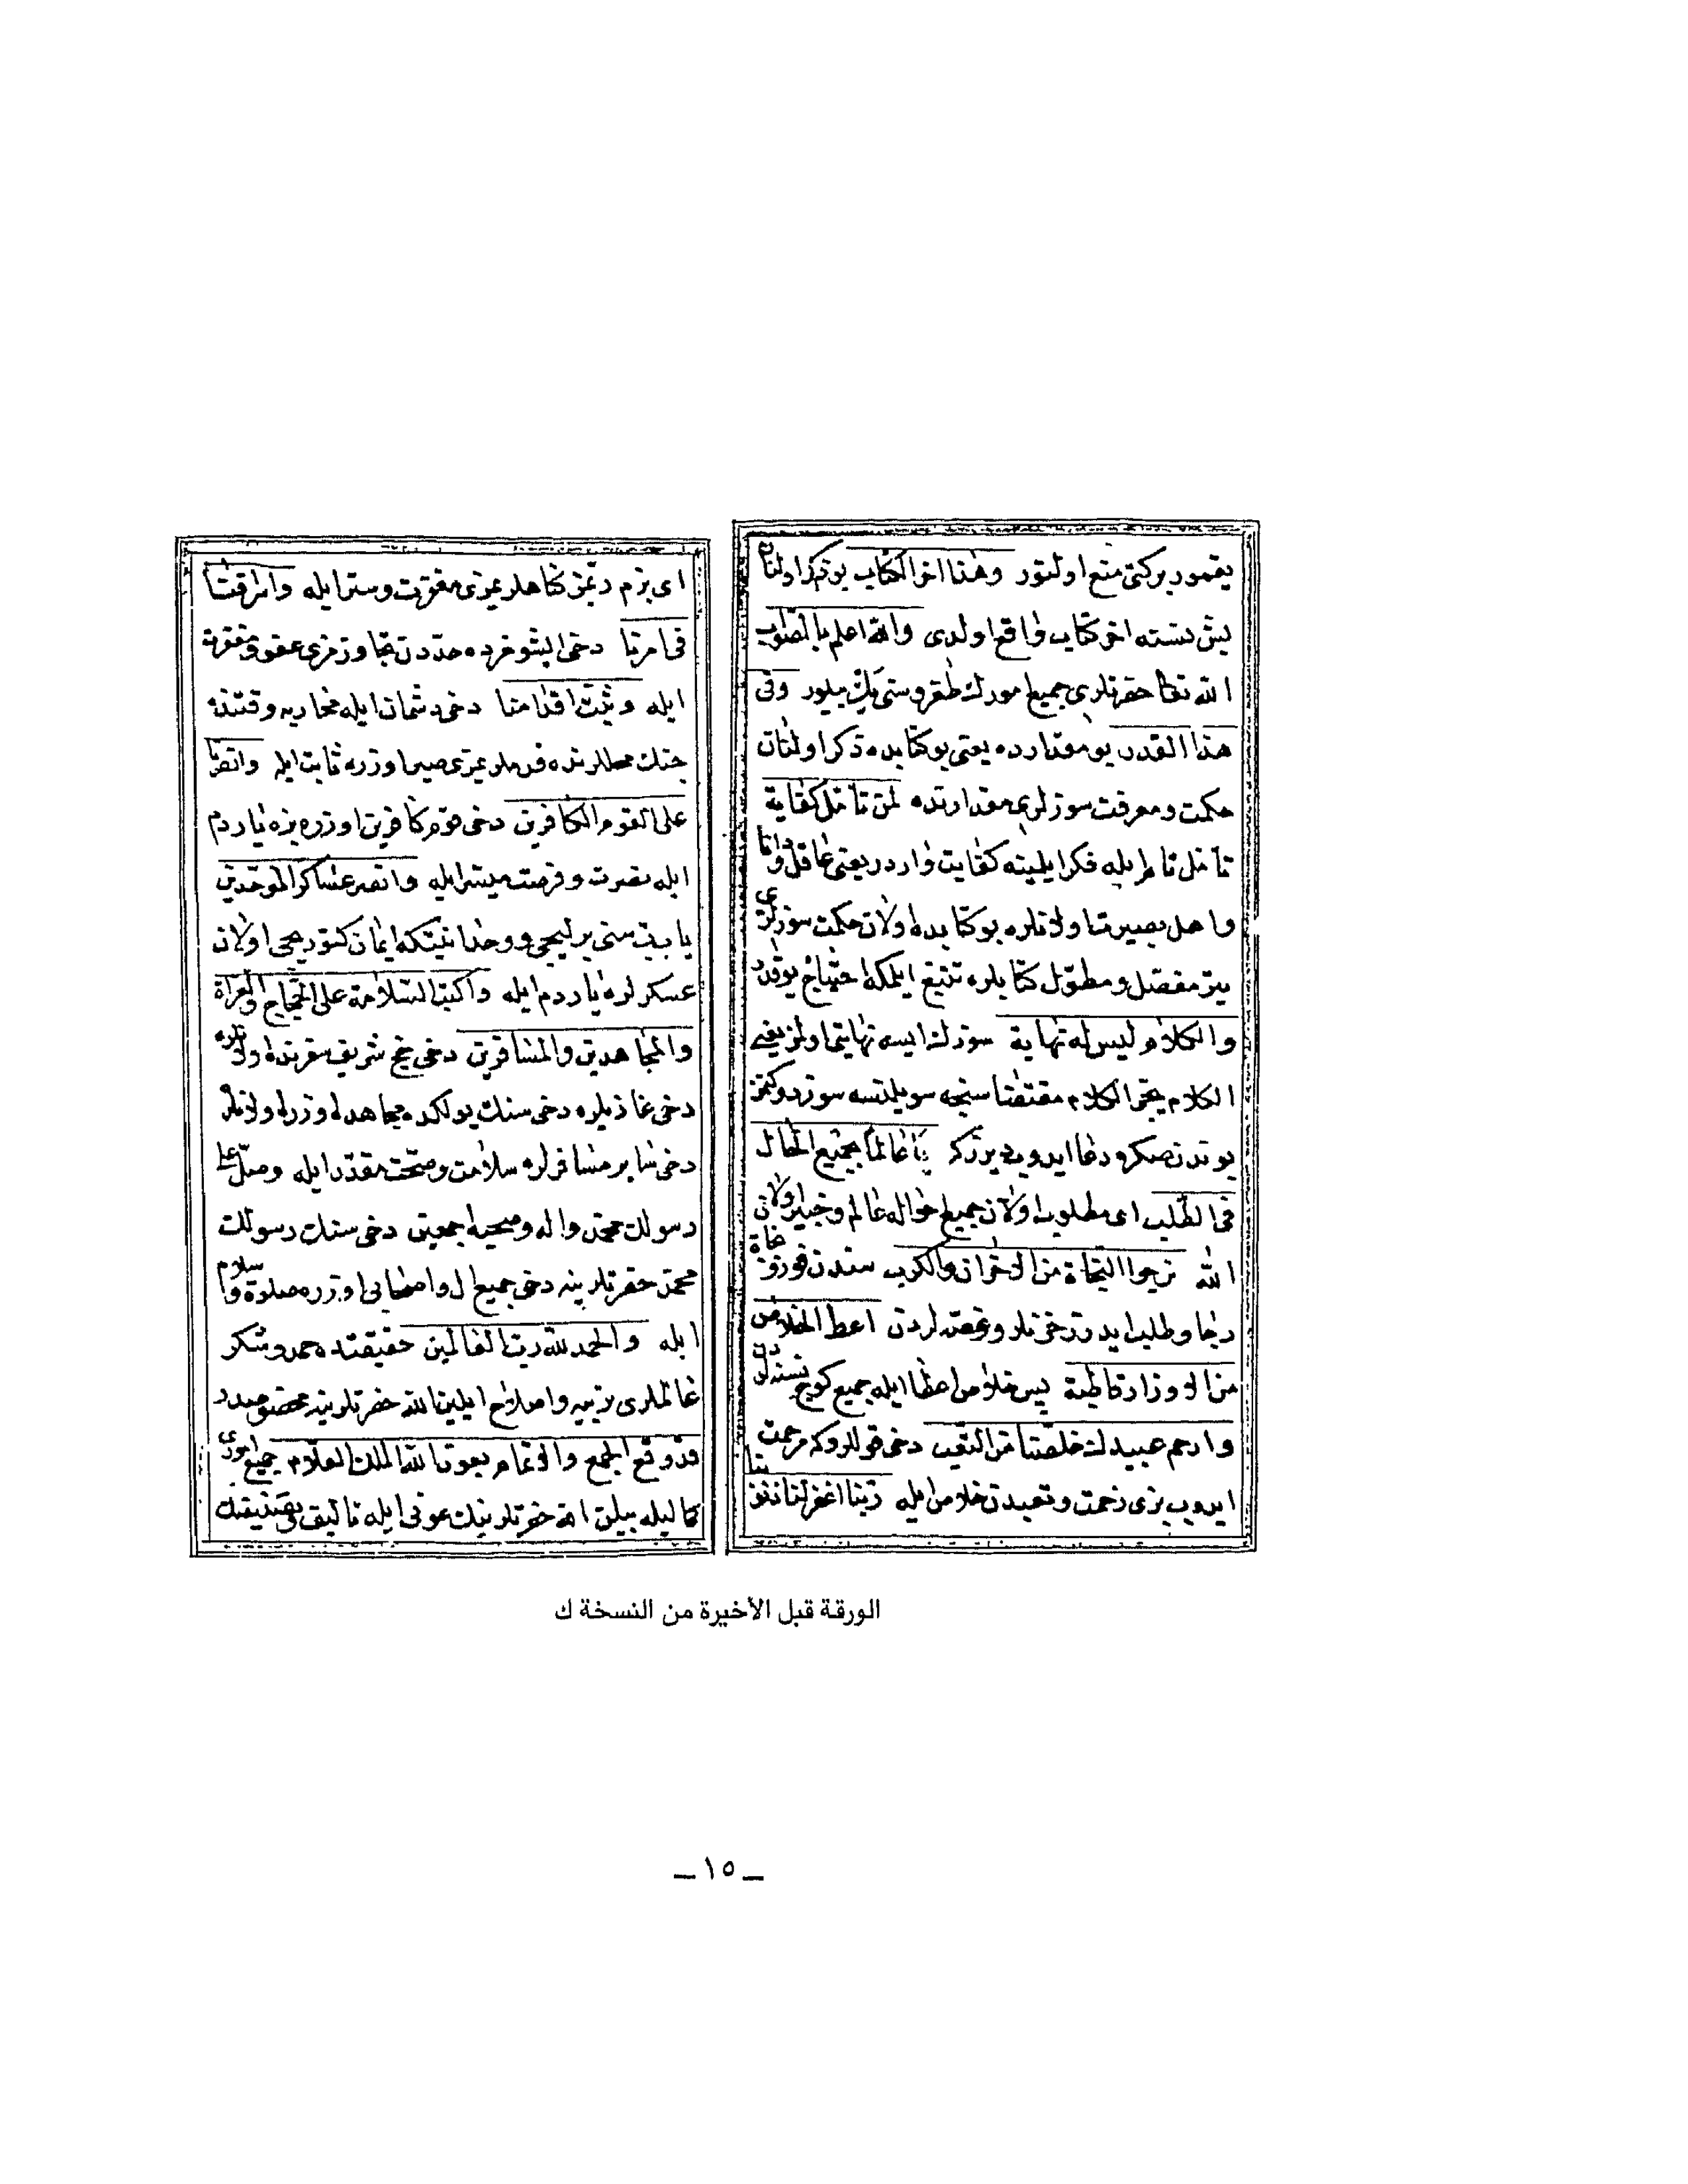 يغمور بركتى منع اولنور وهذا اخر الكتاب بو ذكر اولنان
بش نسنه اخر كتاب واقع اولدى والله اعلم بالصواب
الله تعالى حضرتلرى جميع امورك طغروسنى يك بيلور وفى
هذا القدر بو مقدارده يعنى بو كتابده ذكر اولنان
حكمت ومعرفت سوزلرى مقدارنده لمن تأمل كفاية
تأمل تام ايله فكر ايلينه كفايت واردر يعنى عاقل ودانا
واهل بصيرت اولانلره بو كتابده اولان حكمت سوزلرى
يتر مفصل ومطول كتابلره تتبع ايلمكه احتياج يوقدر
والكلام ليس له نهاية سوزك ايسه نهايتى اولمز يعنى
الكلام يجر الكلام مقتضاسنجه سويلنسه سوز دوكنمز
بوندنصكره دعا ايدوب ديرزكه يا عالما بجميع الحال
فى الطلب اى مطلوب اولان جميع احواله عالم وخبير اولان
الله نرجوا النجاة من الاحزان والكرب سندن قورتو نجاة
رجا وطلب ايدرز حزنلر وغصه لردن اعط الخلاص
من الاوزار قاطبة پس خلاص اعطا ايله جميع كوج نسنه لردن
وارحم عبيدك خلصنا من التعب دخى قوللروكه مرحمت
ايدوب بزى زحمت وتعبدن خلاص ايله ربنا اغفر لنا ذنوبنا
اى بزم ربمز كناهلريمزى مغفرت وستر ايله واسرافنا
فى امرنا دخى ايشومزده حددن تجاوزمزى عفو ومغفرت
ايله وثبت اقدامنا دخى دشمان ايله محاربه وقتنده
جنك محللرنده قدملريمزى صبر اوزره ثابت ايله وانصرنا
على القوم الكافرين دخى قوم كافرين اوزره بزه ياردم
ايله نصرت وفرصت ميسر ايله وانصر عساكر الموحدين
يا رب سنى برليجى ووحدانيتكه ايمان كتوريجى اولان
عسكرلره ياردم ايله واكتب السلامة على الحجاج والغزاة
والمجاهدين والمسافرين دخى حج شريف سفرنده اولانلره
دخى غازيلره دخى سنك يولكده مجاهده اوزره اولانلره
دخى سائر مسافرلره سلامت وصحت مقدر ايله وصل على
رسولك محمد واله وصحبه اجمعين دخى سنك رسولك
محمد حضرتلرينه دخى جميع ال واصحابى اوزره صلوة وسلام
ايله والحمد لله رب العالمين حقيقتده حمد وشكر
عالملرى تربيه واصلاح ايلين الله حضرتلرينه مخصوصدر
قد وقع الجمع والاتمام بعون الله الملك العلام جميع امورى
كماليله بيلن الله حضرتلرينك عونى ايله تأليف وتصنيفك
الورقة قبل الأخيرة من النسخة ك
ـ ١٥ ـ